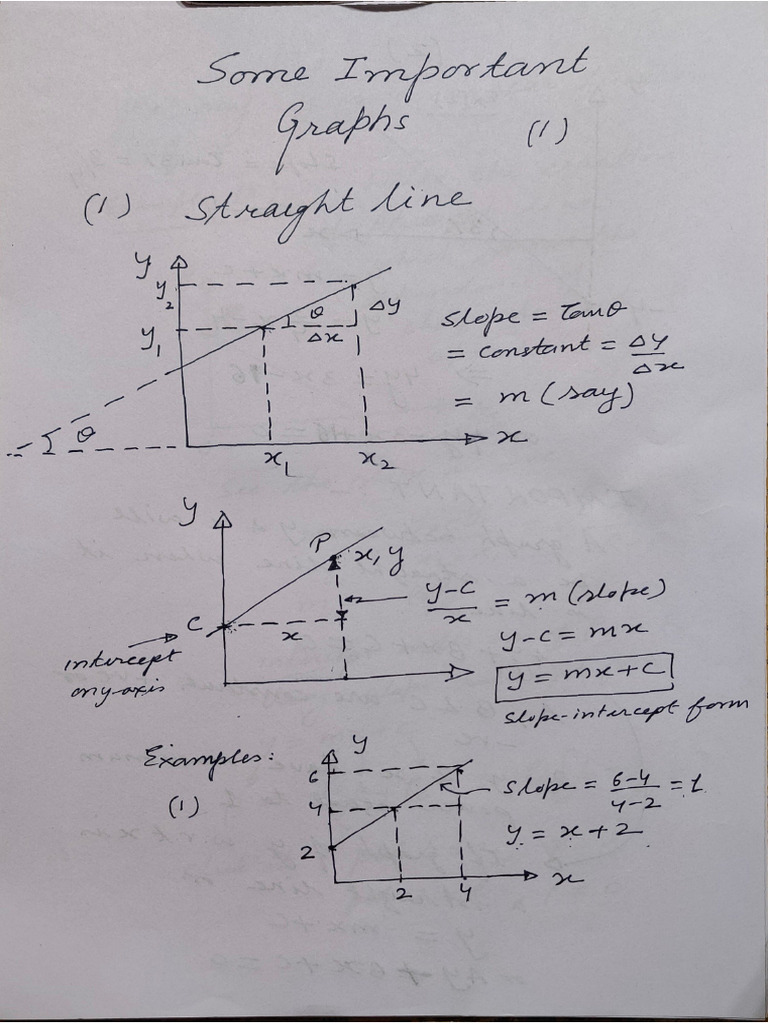 Some Important
Graphs (1)
(1) Straight line
y
y2
y1
θ
Δx
Δy
θ
x1
x2
x
slope = Tanθ
= constant = Δy/Δx
= m (say)
y
P
x, y
C
x
intercept
on y-axis
y-c/x = m (slope)
y-c = mx
y = mx+c
slope-intercept form
Examples:
(1)
y
6
4
2
2
4
x
slope = 6-4/4-2 = 1
y = x + 2